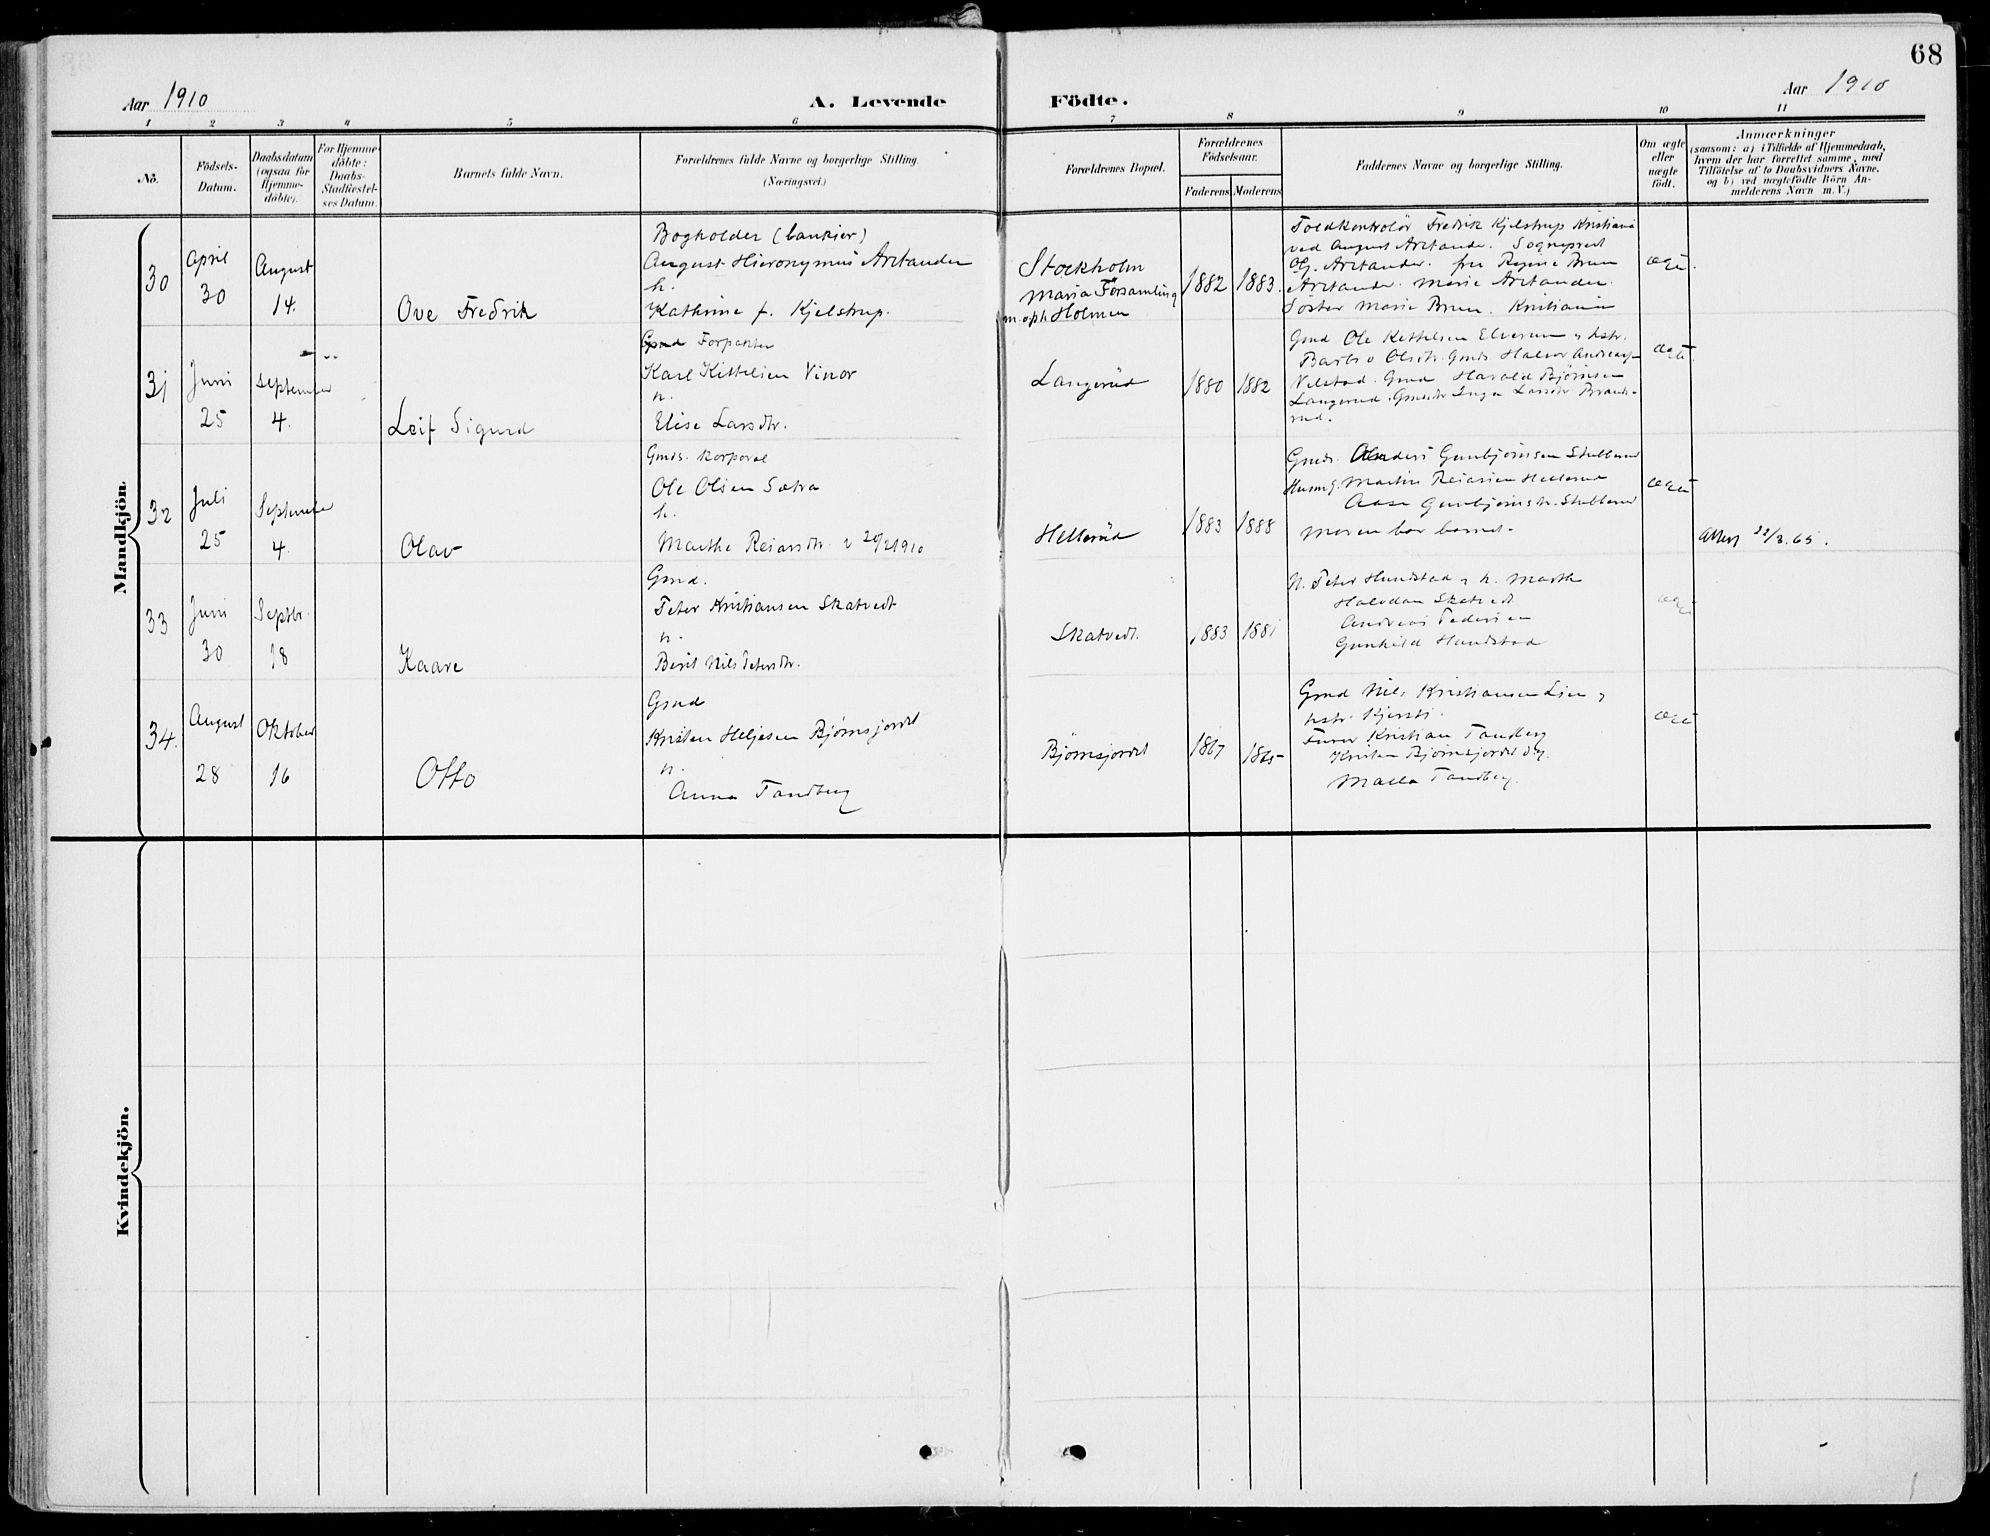 68
Aar 1910
A. Levende
Födte.
Aar 1910
1 2 3 4 5 6 7 8 9 10 11
No.
Födsels-
Datum.
Daabsdatum
(ogsaa for
Hjemme-
döbte).
For Hjemme-
döbte:
Daabs-
Stadfæstel-
ses Datum.
Barnets fulde Navn.
Forældrenes fulde Navne og borgerlige Stilling.
(Næringsvei.)
Forældrenes Bopæl.
Forældrenes
Födselsaar.
Faderens
Moderens
Faddernes Navne og borgerlige Stilling.
Om ægte
eller
uægte
födt.
Anmærkninger
(saasom: a) i Tilfælde af Hjemmedaab,
hvem der har forrettet samme, med
Tilföielse af to Daabsvidners Navne,
og b) ved uægtefödte Börn An-
melderens Navn m. V.)
Mandkjön.
30
April
30
August
14.
Ove Fredrik
Bogholder (bankier)
August Hieronymus Arctander
h.
Kathrine f. Kjelstrup.
Stockholm
Maria Församling
m. oph Holmen
1882
1883.
Toldkontrolør Fredrik Kjelstrup Kristiania
ved August Arctander. Sogneprest
Arctander. fru Regine Brun
Arctander. Marie Arctander.
Søster Marie Brun. Kristiania
ægte.
31
Juni
25
September
4.
Leif Sigurd
Forpakter
Karl Kittelsen Vinor
h.
Elise Larsdtr.
Langerud
1880
1882
Gmd Ole Kittelsen Elverum og hstr.
Barbro Olsdtr. Gmds Halvor Andreas
Velstad. Gmd Harald Bjørnsen
Langerud. Inga Larsdtr Braate-
rud.
ægte.
32
Juli
25
September
4.
Olav
Gmds. korporal
Ole Olsen Sætra
h.
Marthe Reiarsdtr. v 20/2 1910
Hellerud
1883
1888
Gmds. Gunbjørnsen Stubberud
Martin Reiersen Hellerud
Aase Gunbjørnsdtr. Stubberud
moren bar barnet.
ægte
Attest 22/3.65.
33
Juni
30
Septbr.
18
Kaare
Gmd.
Peter Kristiansen Skatvedt
h.
Berit Nils Petersdtr.
Skatvedt.
1883
1881
N. Peter Hundstad og h. Marthe
Halvdan Skatvedt
Andreas Pedersen
Gunhild Hundstad
ægte
34.
August
28
Oktober
16
Otto
Gmd
Kristen Helgesen Bjørnsjordet
h.
Anna Tandberg
Bjørnsjordet
1867
1865
Gmd Nils Kristiansen Lien og
hstr. Kjersti.
Furer Kristian Tandberg
Kristen Bjørnsjordet og
Tandberg.
ægte
Kvindekjön.